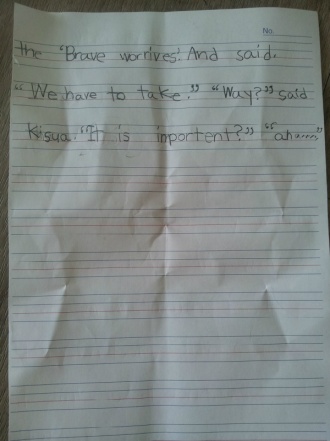 No.
the "Brave worrives". And said.
"We have to take." "Way?" said
Kisua. "It is inportent?" "aham"